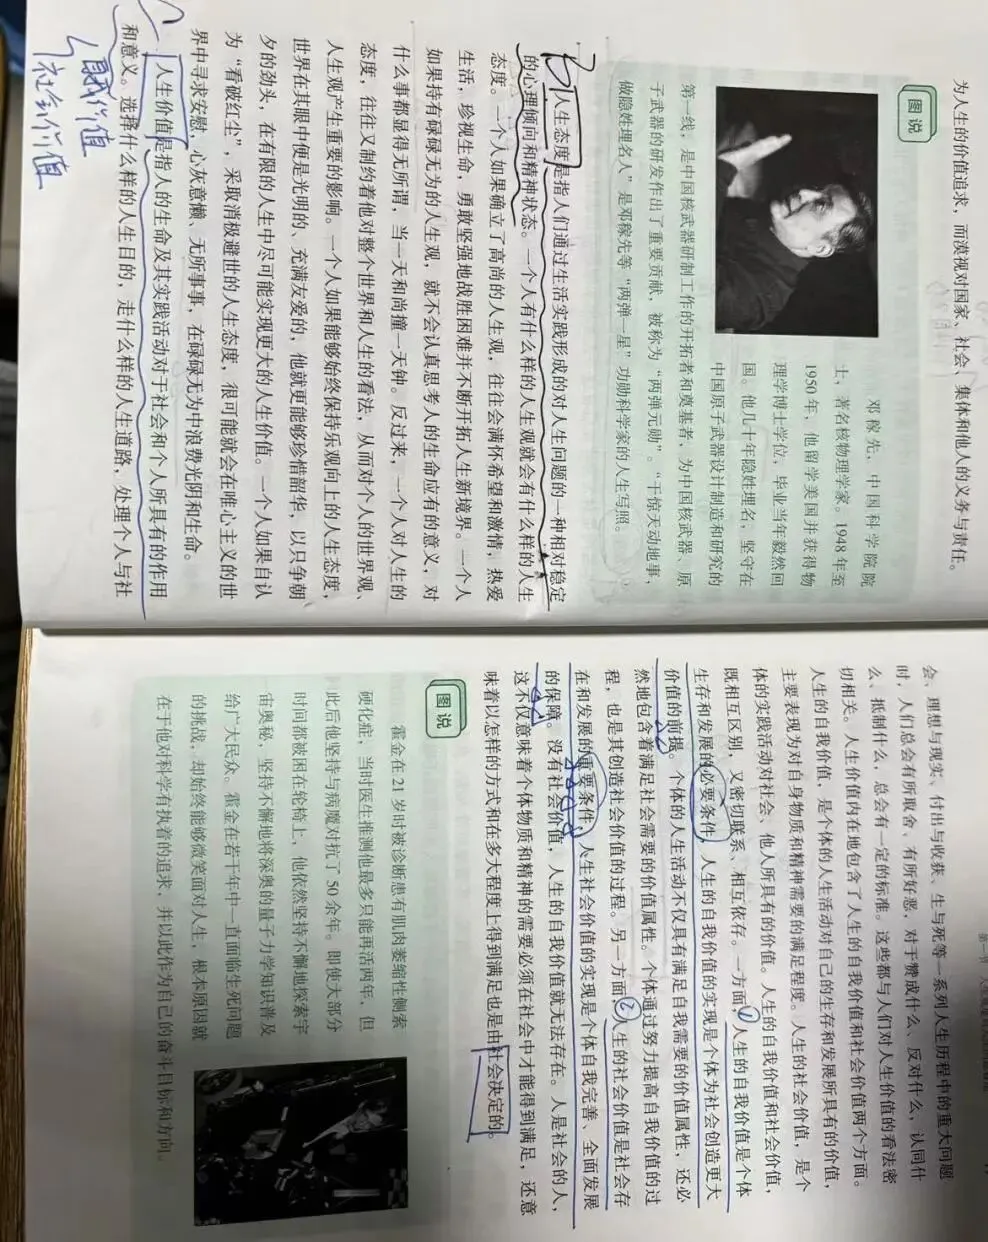 为人生的价值追求，而漠视对国家、社会、集体和他人的义务与责任。
图说
邓稼先，中国科学院院
士，著名核物理学家。1948年至
1950年，他留学美国并获得物
理学博士学位，毕业当年毅然回
国。他几十年隐姓埋名，坚守在
中国原子武器设计制造和研究的
第一线，是中国核武器研制工作的开拓者和奠基者，为中国核武器、原
子武器的研发作出了重要贡献，被称为“两弹元勋”。“干惊天动地事，
做隐姓埋名人”是邓稼先等“两弹一星”功勋科学家的人生写照。
人生态度是指人们通过生活实践形成的对人生问题的一种相对稳定
的心理倾向和精神状态。一个人有什么样的人生观就会有什么样的人生
态度。一个人如果确立了高尚的人生观，往往会满怀希望和激情，热爱
生活，珍视生命，勇敢坚强地战胜困难并不断开拓人生新境界。一个人
如果持有碌碌无为的人生观，就不会认真思考人的生命应有的意义，对
什么事都显得无所谓，当一天和尚撞一天钟。反过来，一个人对人生的
态度，往往又制约着他对整个世界和人生的看法，从而对个人的世界观、
人生观产生重要的影响。一个人如果能够始终保持乐观向上的人生态度，
世界在其眼中便是光明的、充满友爱的，他就更能够珍惜韶华，以只争朝
夕的劲头，在有限的人生中尽可能实现更大的人生价值。一个人如果自认
为“看破红尘”，采取消极避世的人生态度，很可能就会在唯心主义的世
界中寻求安慰，心灰意懒、无所事事，在碌碌无为中浪费光阴和生命。
人生价值是指人的生命及其实践活动对于社会和个人所具有的作用
和意义。选择什么样的人生目的，走什么样的人生道路，处理个人与社
自我价值
社会价值
会、理想与现实、付出与收获、生与死等一系列人生历程中的重大问题
时，人们总会有所取舍、有所好恶，对于赞成什么、反对什么，认同什
么、抵制什么，总会有一定的标准。这些都与人们对人生价值的看法密
切相关。人生价值内在地包含了人生的自我价值和社会价值两个方面。
人生的自我价值，是个体的人生活动对自己的生存和发展所具有的价值，
主要表现为对自身物质和精神需要的满足程度。人生的社会价值，是个
体的实践活动对社会、他人所具有的价值。人生的自我价值和社会价值，
既相互区别，又密切联系、相互依存。一方面，①人生的自我价值是个体
生存和发展的必要条件，人生的自我价值的实现是个体为社会创造更大
价值的前提。个体的人生活动不仅具有满足自我需要的价值属性，还必
然地包含着满足社会需要的价值属性。个体通过努力提高自我价值的过
程，也是其创造社会价值的过程。另一方面，②人生的社会价值是社会存
在和发展的重要条件，人生社会价值的实现是个体自我完善、全面发展
的保障。没有社会价值，人生的自我价值就无法存在。人是社会的人，
这不仅意味着个体物质和精神的需要必须在社会中才能得到满足，还意
味着以怎样的方式和在多大程度上得到满足也是由社会决定的。
图说
霍金在21岁时被诊断患有肌肉萎缩性侧索
硬化症，当时医生推测他最多只能再活两年，但
此后他坚持与病魔对抗了50余年。即使大部分
时间都被困在轮椅上，他依然坚持不懈地探索宇
宙奥秘，坚持不懈地将深奥的量子力学知识普及
给广大民众。霍金在若干年中一直面临生死问题
的挑战，却始终能够微笑面对人生，根本原因就
在于他对科学有执着的追求，并以此作为自己的奋斗目标和方向。